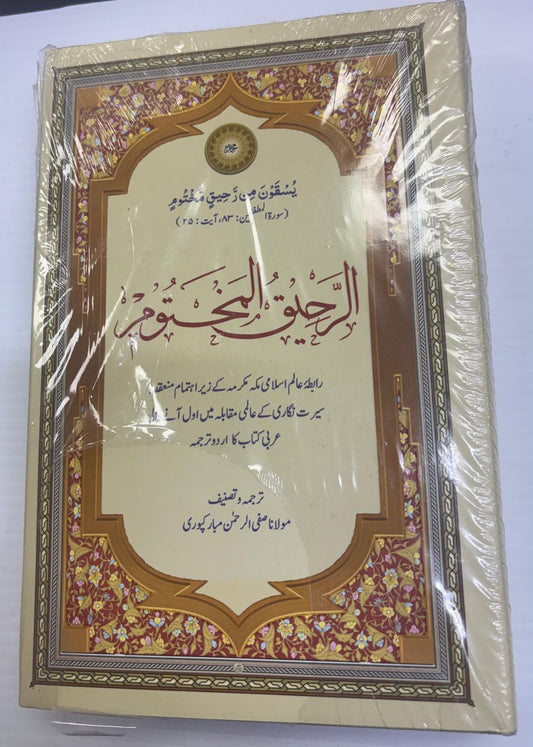 يُسْقَوْنَ مِن رَّحِيقٍ مَّخْتُومٍ
(سورۃ المطففین: ۸۳، آیت: ۲۵)
الرَّحِيقُ المَخْتُوم
رابطۂ عالم اسلامی مکہ مکرمہ کے زیر اہتمام منعقدہ
سیرت نگاری کے عالمی مقابلہ میں اول آنے
عربی کتاب کا اردو ترجمہ
ترجمہ و تصنیف
مولانا صفی الرحمٰن مبارکپوری